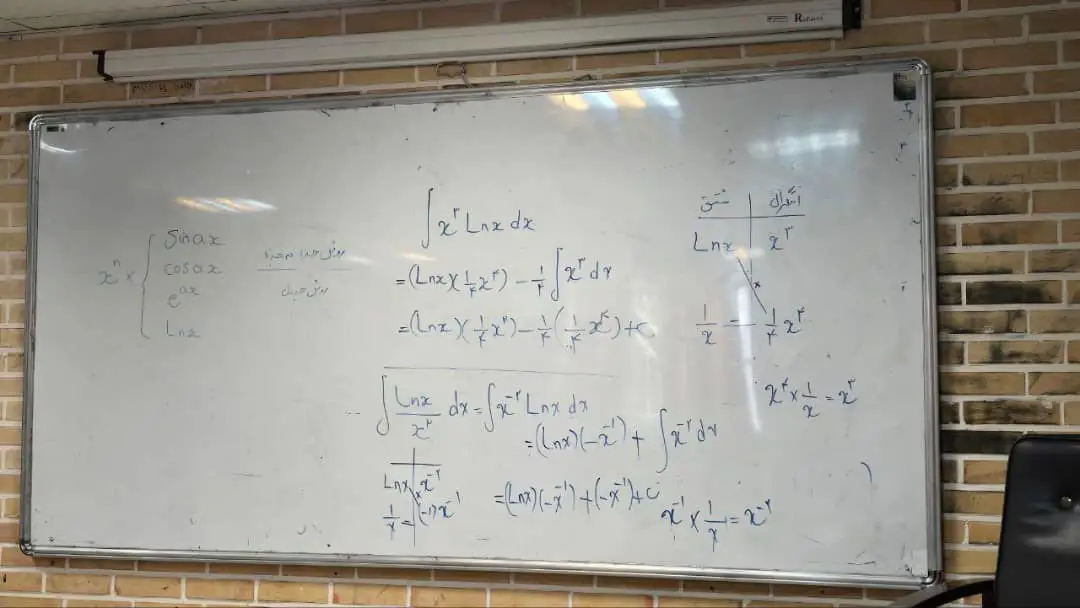 xⁿ × { sin ax
cos ax
e^{ax}
Ln x
روش جدول
∫ x^۳ Ln x dx
= (Ln x)(1/۴ x^۴) − 1/۴ ∫ x^۳ dx
= (Ln x)(1/۴ x^۴) − 1/۴ (1/۴ x^۴) + C
مشتق | انتگرال
Ln x | x^۳
1/x — 1/۴ x^۴
x^۴ × 1/x = x^۳
∫ Ln x / x^۲ dx = ∫ x^{-۲} Ln x dx
= (Ln x)(−x^{-1}) + ∫ x^{-۲} dx
Ln x | x^{-۲}
1/x = (-1) x^{-1}
= (Ln x)(−x^{-1}) + (−x^{-1}) + C
x^{-1} × 1/x = x^{-۲}